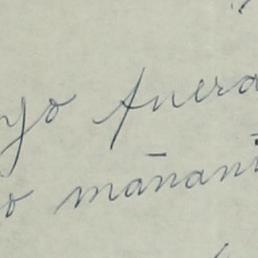 yo fuera
o mañani